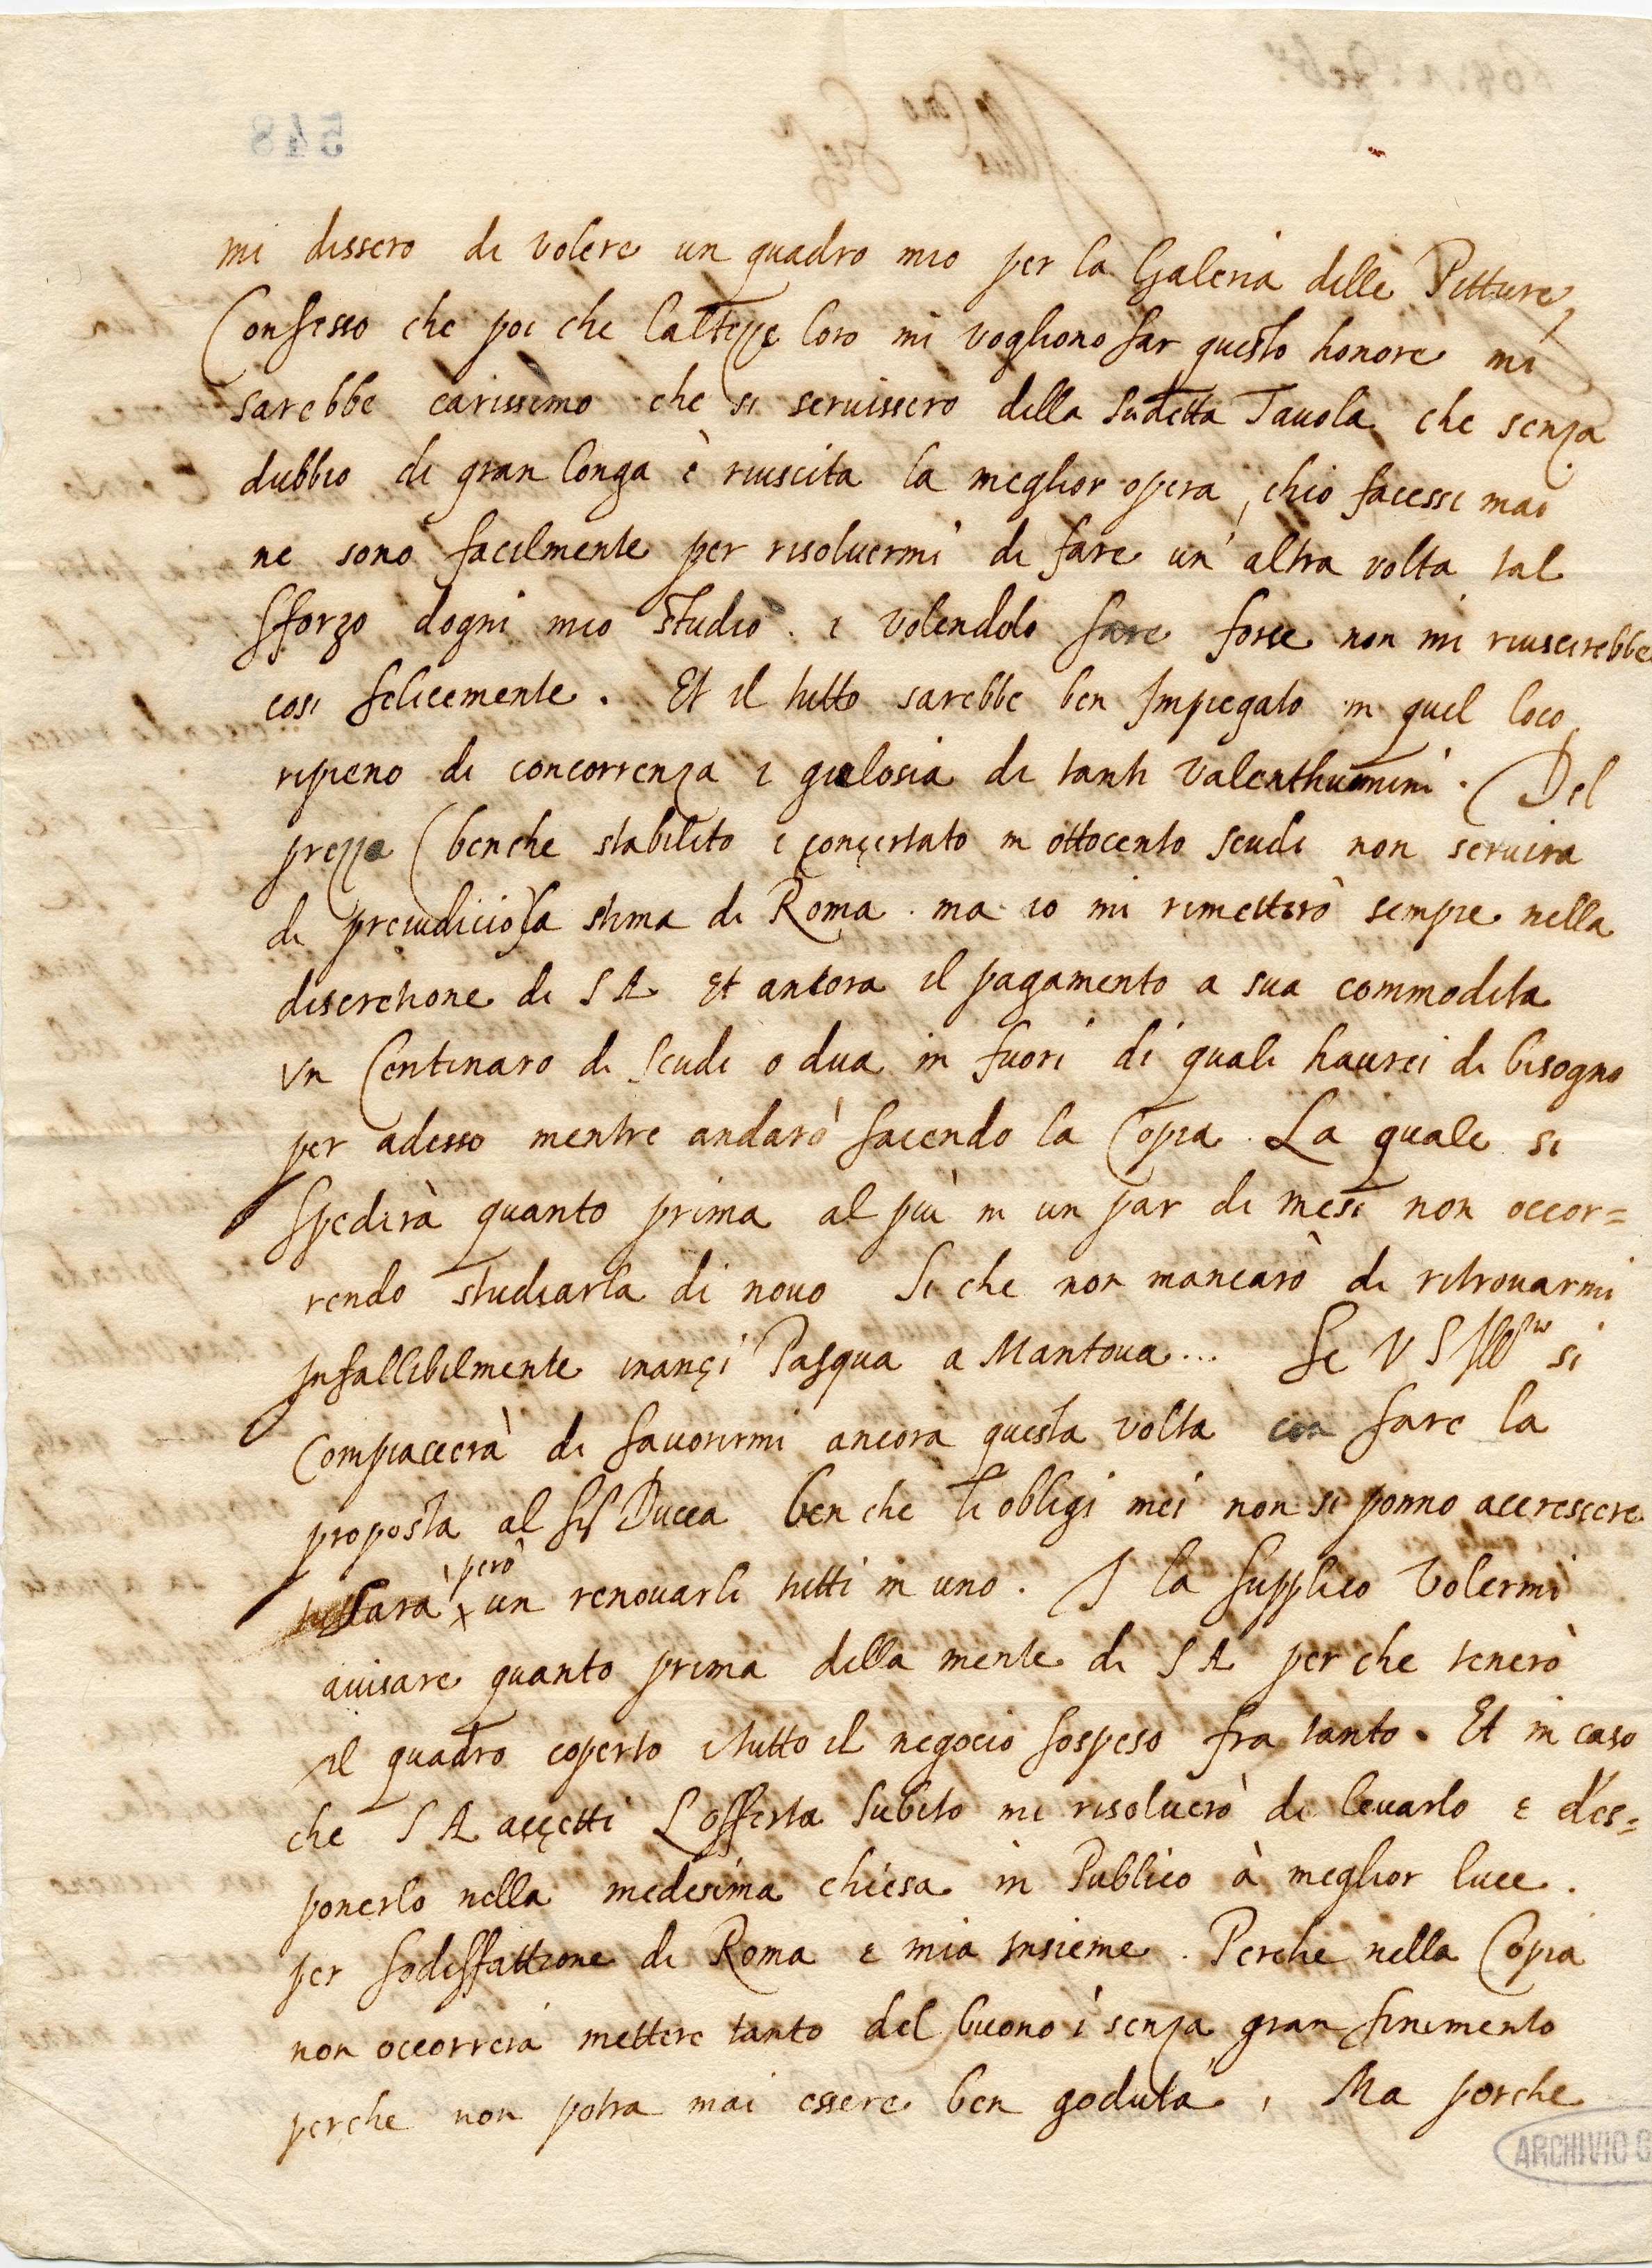 mi dissero di volere un quadro mio per la Galeria delle Pitture,
Confesso che poi che l'altezze loro mi vogliono far questo honore mi
sarebbe carissimo che si seruissero della sudetta Tauola che senza
dubbio di gran longa è riuscita la meglior opera, chio facessi mai
ne sono facilmente per risoluermi di fare un'altra volta tal
sforzo dogni mio studio. e volendolo fare forse non mi riuscirebbe
cosi felicemente. Et il tutto sarebbe ben Impiegato in quel loco
ripieno di concorrenza e gielosia di tanti valenthuomini. Del
prezzo (benche stabilito e conçertato in ottocento scudi non seruira
di preiudicio) la stima di Roma. ma io mi rimetterò sempre nella
discretione di S A Et ancora il pagamento a sua commodita
Un Centinaro di scudi o dua in fuori di quali haurei di bisogno
per adesso mentre andarò facendo la Copia. La quale si
spedirà quanto prima al più in un par di mesi non occor=
rendo studiarla di nouo Si che non mancarò di ritrouarmi
Infallibilmente inançi Pasqua a Mantoua... Se V S Illma si
Compiacerà di fauorirmi ancora questa volta con fare la
proposta al Sr Ducca ben che li obligi mei non si ponno accrescere
sarà però un renouarli tutti in uno. I la supplico volermi
auisare quanto prima della mente di S A per che tenerò
il quadro coperto e tutto il negocio sospeso fra tanto. Et in caso
che S A açcetti L'offerta subito mi risoluerò di leuarlo e d'es=
ponerlo nella medesima chiesa in Publico à meglior luce.
per sodisfattione di Roma e mia insieme. Perche nella Copia
non occorrerà mettere tanto del buono i senza gran finimento
perche non potra mai essere ben goduta, Ma perche
548
ARCHIVIO G